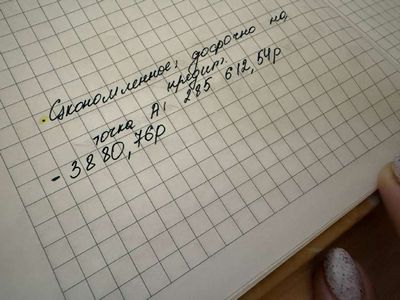 Сэкономленное: досрочно на
кредит.
точка А: 285 612,54р
- 3880,76р